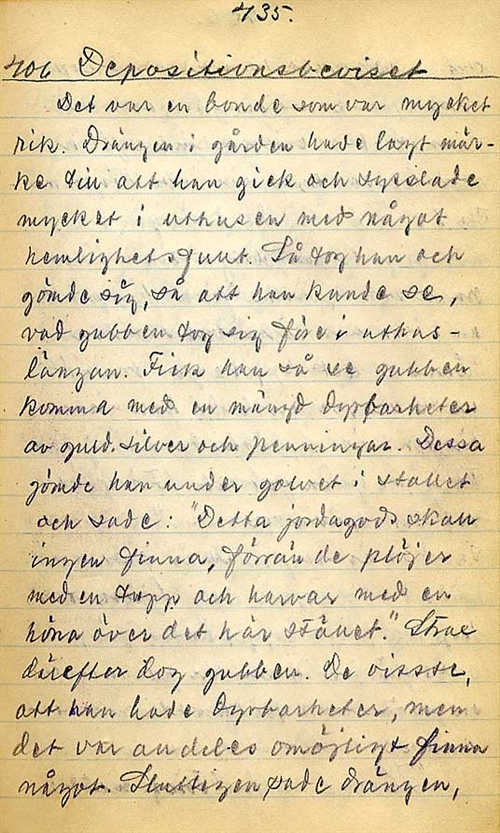 435.
406 Depositionsbeviset
Det var en bonde som var mycket
rik. Drängen i gården hade lagt mär-
ke till att han gick och sysslade
mycket i uthusen med något
hemlighetsfullt. Så tog han och
gömde sig, så att han kunde se,
vad gubben tog sig före i uthus-
längan. Fick han så se gubben
komma med en mängd dyrbarheter
av guld, silver och penningar. Dessa
gömde han under golvet i stallet
och sade: "Detta jordagods skall
ingen finna, förrän de plöjer
med en tupp och harvar med en
höna över det här stället." Strax
därefter dog gubben. De visste,
att han hade dyrbarheter, men
det var andeles omöjligt finna
något. Slutligen sade drängen,